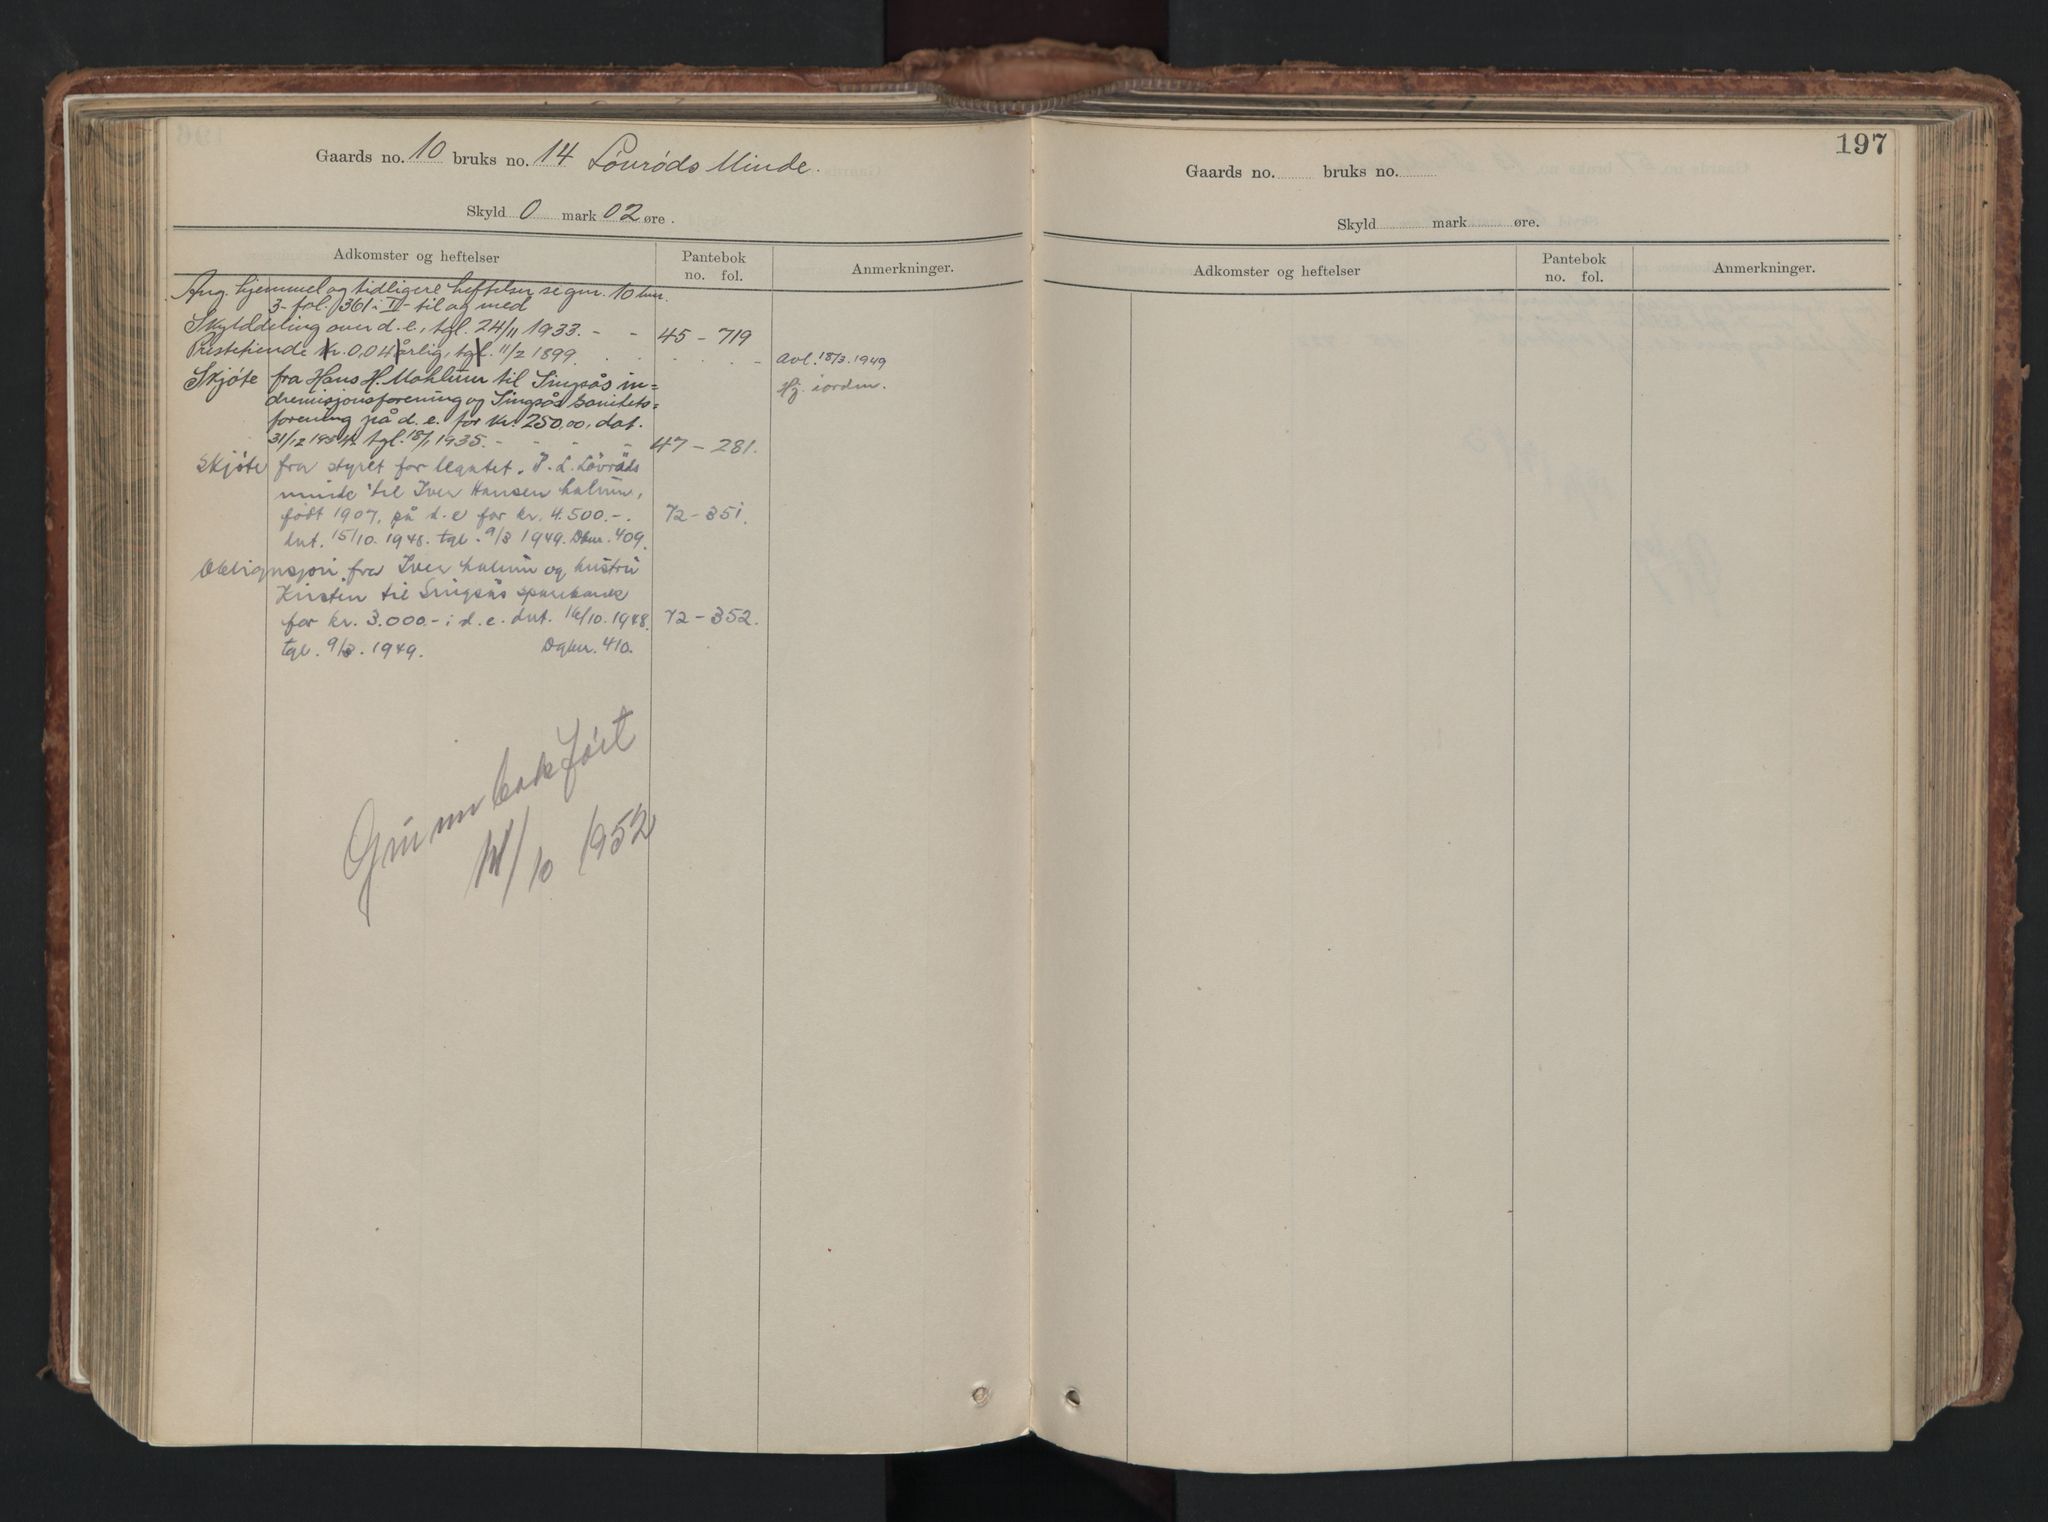 Gaards no. 10 bruks no. 14 Lövröds Minde.
Skyld 0 mark 02 øre.
Adkomster og heftelser
Pantebok
no. fol.
Anmerkninger.
Ang. hjemmel og tidligere heftelser se gnr. 10 bnr.
3 - fol. 361 - II - til og med
Skylddeling over d.e., tgl. 24/11 1933. - - 45 - 719
Prestetiende kr. 0,04 årlig, tgl. 11/2 1899. Avl. 18/3. 1949
Skjøte fra Hans H. til Singsås in= Hj. iorden.
dremisjonsforening og Singsås sanitets=
forening på d. e. for kr. 250,00, dat.
31/12 tgl. 18/1 1935. - - - - 47 - 281.
Skjøte fra styret for legatet. L. Lövröds
minde til Iver Hansen
født 1907, på d. e for kr. 4.500.-. 72 - 351.
dat. 15/10. 1948. tgl. 9/3 1949. Dbnr. 409.
Obligasjon fra Iver og hustru
Kirsten til Singsås sparebank
for kr. 3.000.- i d. e. dat. 16/10. 1948. 72 - 352.
tgl. 9/3. 1949. Dgbnr. 410.
Grunnbokført
/10 1952
197
Gaards no. bruks no.
Skyld mark øre.
Adkomster og heftelser
Pantebok
no. fol.
Anmerkninger.